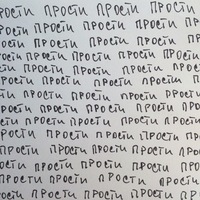 ПРОСТИ ПРОСТИ ПРОСТИ ПРОСТИ
ПРОСТИ ПРОСТИ ПРОСТИ ПРОСТИ
ПРОСТИ ПРОСТИ ПРОСТИ ПРОСТИ
ПРОСТИ ПРОСТИ ПРОСТИ ПРОСТИ
ПРОСТИ ПРОСТИ ПРОСТИ ПРОСТИ
ПРОСТИ ПРОСТИ ПРОСТИ ПРОСТИ
ПРОСТИ ПРОСТИ ПРОСТИ ПРОСТИ
ПРОСТИ ПРОСТИ ПРОСТИ ПРОСТИ
ПРОСТИ ПРОСТИ ПРОСТИ ПРОСТИ
ПРОСТИ ПРОСТИ ПРОСТИ ПРОСТИ
ПРОСТИ ПРОСТИ ПРОСТИ ПРОСТИ
ПРОСТИ ПРОСТИ ПРОСТИ ПРОСТИ
ПРОСТИ ПРОСТИ ПРОСТИ ПРОСТИ
ПРОСТИ ПРОСТИ ПРОСТИ ПРОСТИ